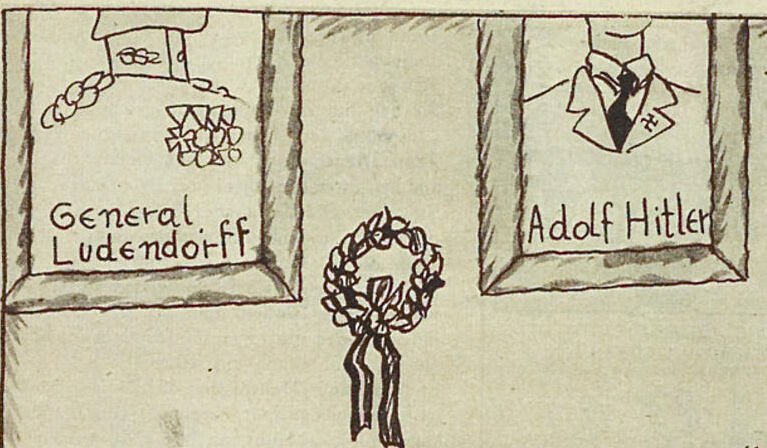 General
Ludendorff
Adolf Hitler